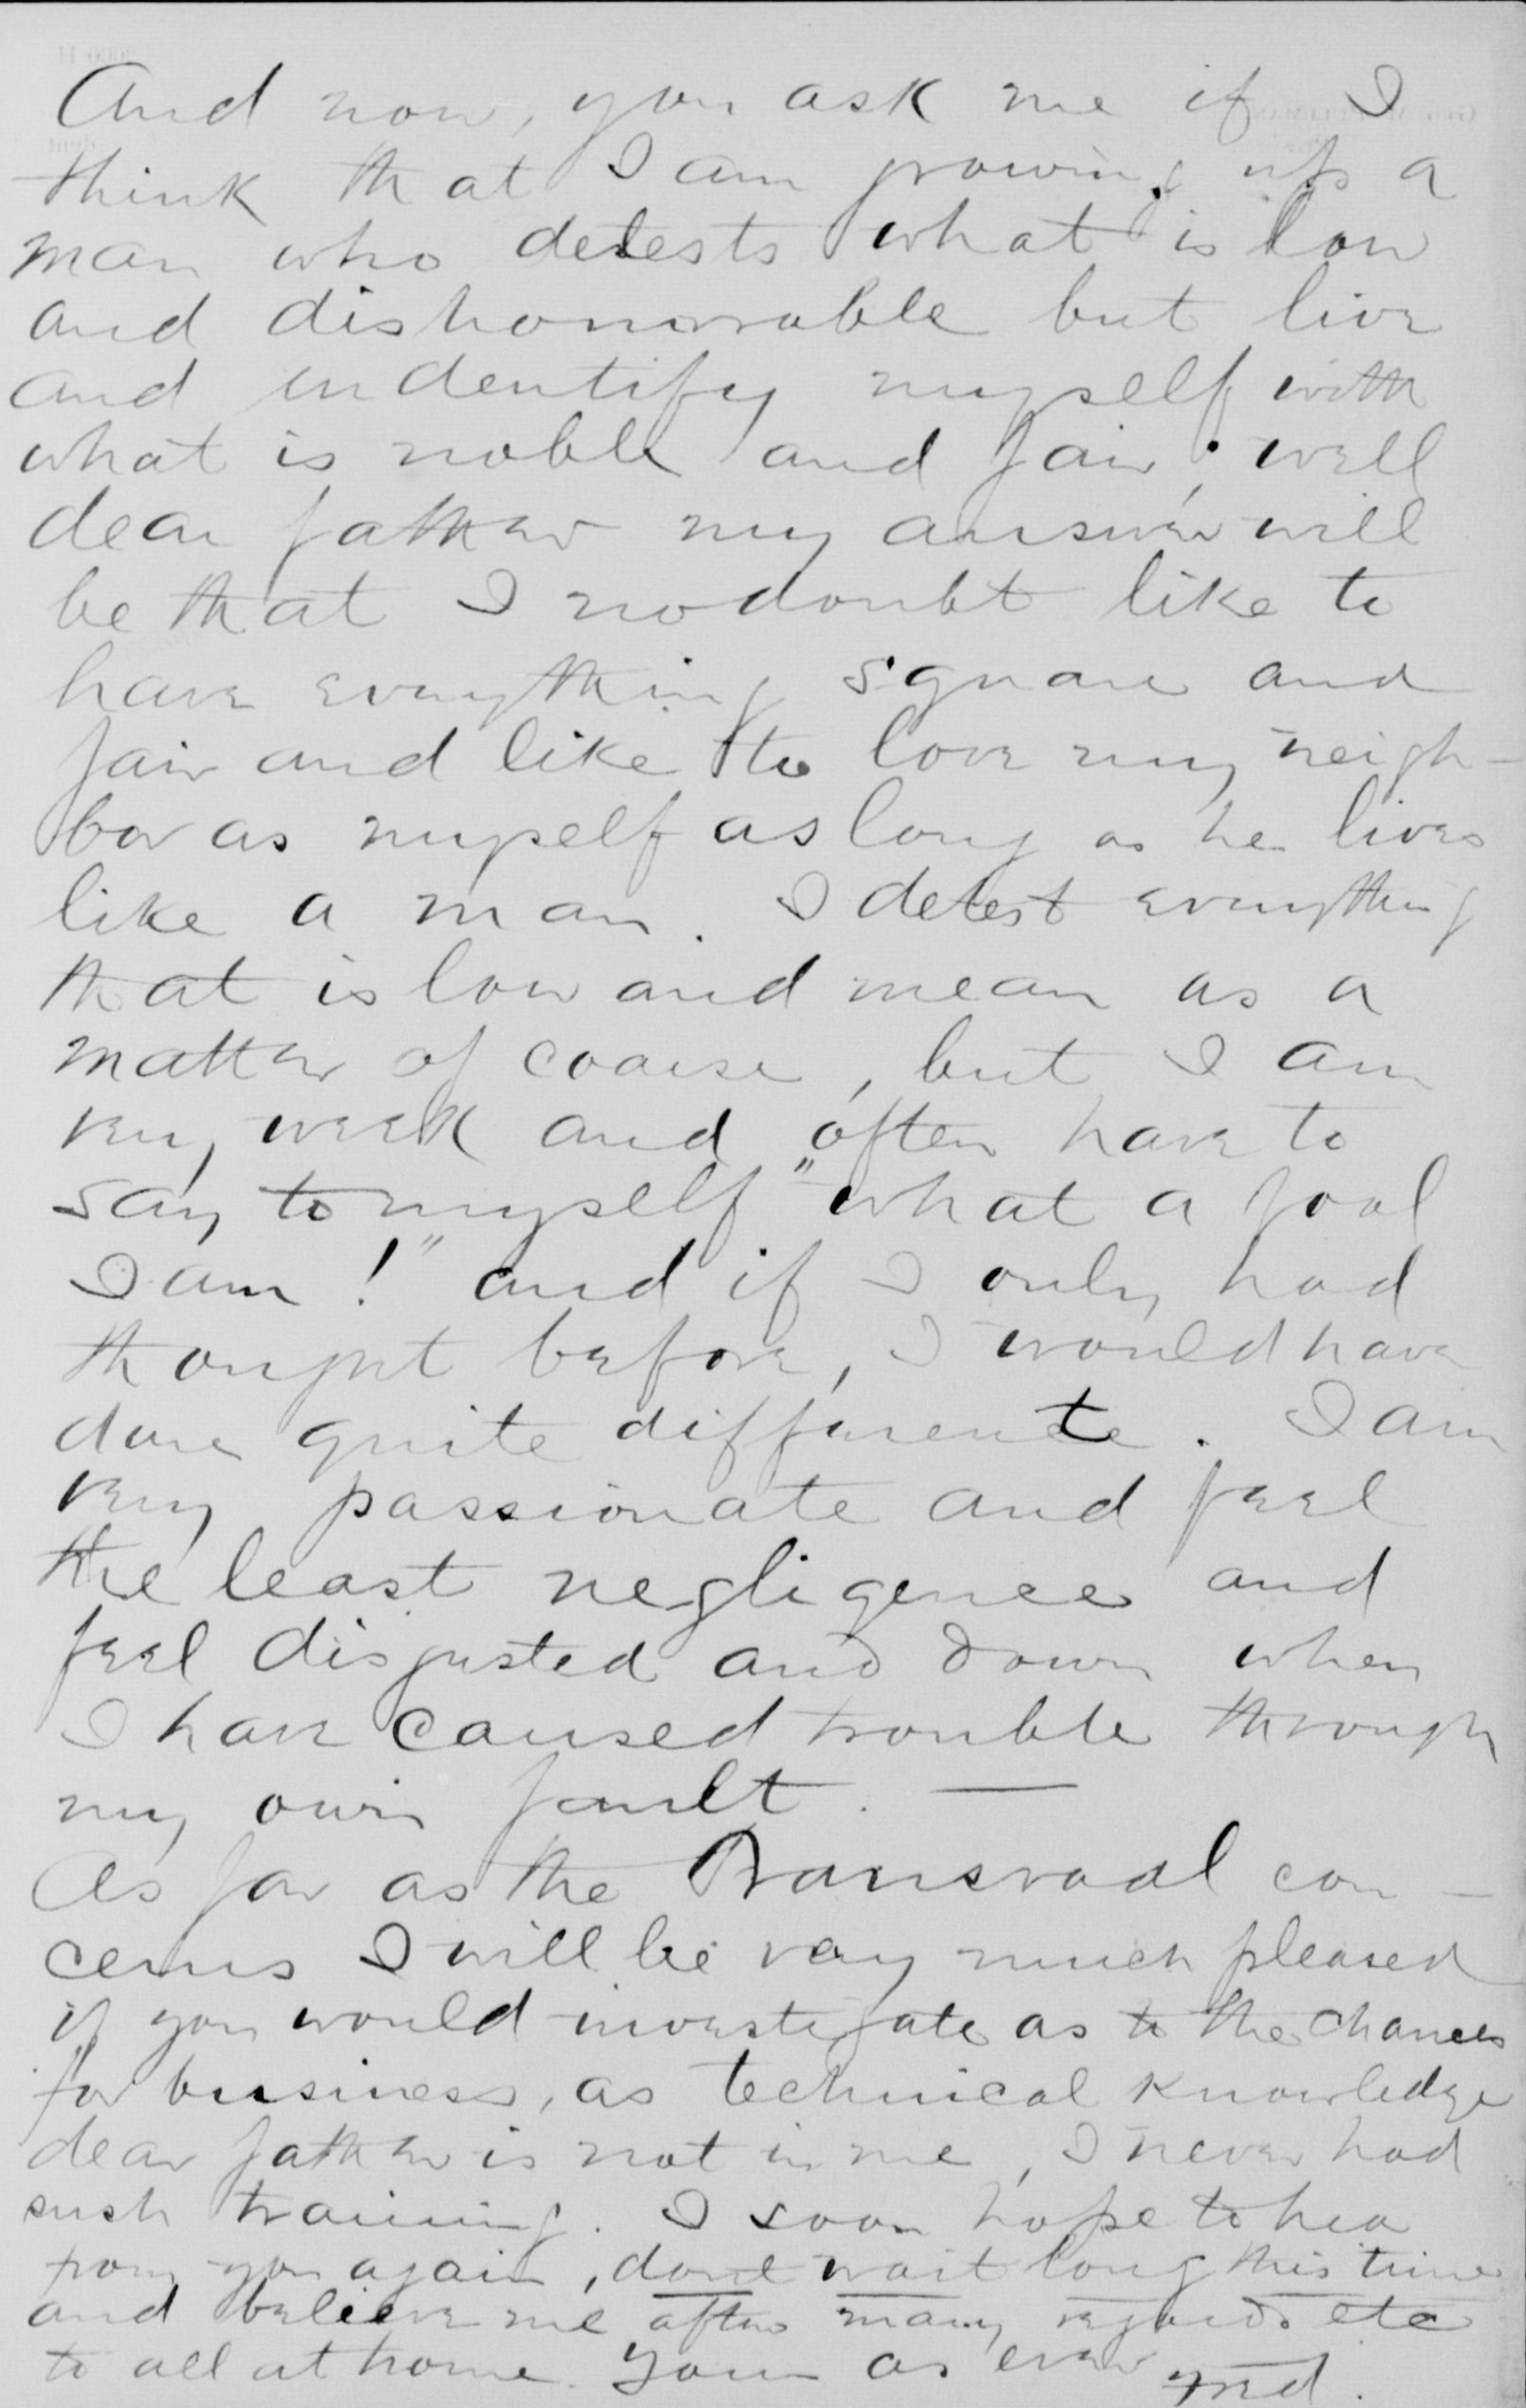 And now, you ask me if I
think that I am growing up a
man who detests what is low
and dishonorable but live
and indentify myself with
what is noble and fair; well
dear father my answer will
be that I no doubt like to
have everything square and
fair and like to love my neigh-
bor as myself as long as he lives
like a man. I detest everything
that is low and mean as a
matter of coarse, but I am
very week and often have to
say to myself "what a fool
I am!" and if I only had
thought before, I would have
done quite differente. I am
very passionate and feel
the least negligence and
feel disgusted and down when
I have caused trouble through
my own fault. —
As far as the Transvaal con-
cerns I will be very much pleased
if you would investigate as to the chances
for business, as technical knowledge
dear father is not in me, I never had
such training. I soon hope to hear
from you again, dont wait long this time
and believe me after many regards etc
to all at home. Yours as ever Fred.